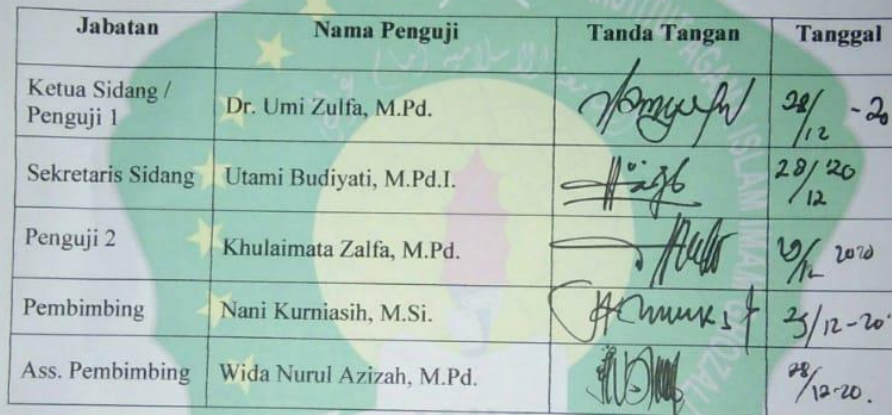 Jabatan Nama Penguji Tanda Tangan Tanggal
Ketua Sidang /
Penguji 1 Dr. Umi Zulfa, M.Pd. 28/12 - 20
Sekretaris Sidang Utami Budiyati, M.Pd.I. 28/12 '20
Penguji 2 Khulaimata Zalfa, M.Pd. /12 2020
Pembimbing Nani Kurniasih, M.Si. /12-20
Ass. Pembimbing Wida Nurul Azizah, M.Pd. 28/12-20.
AGAMA ISLAM IMAM GHOZALI